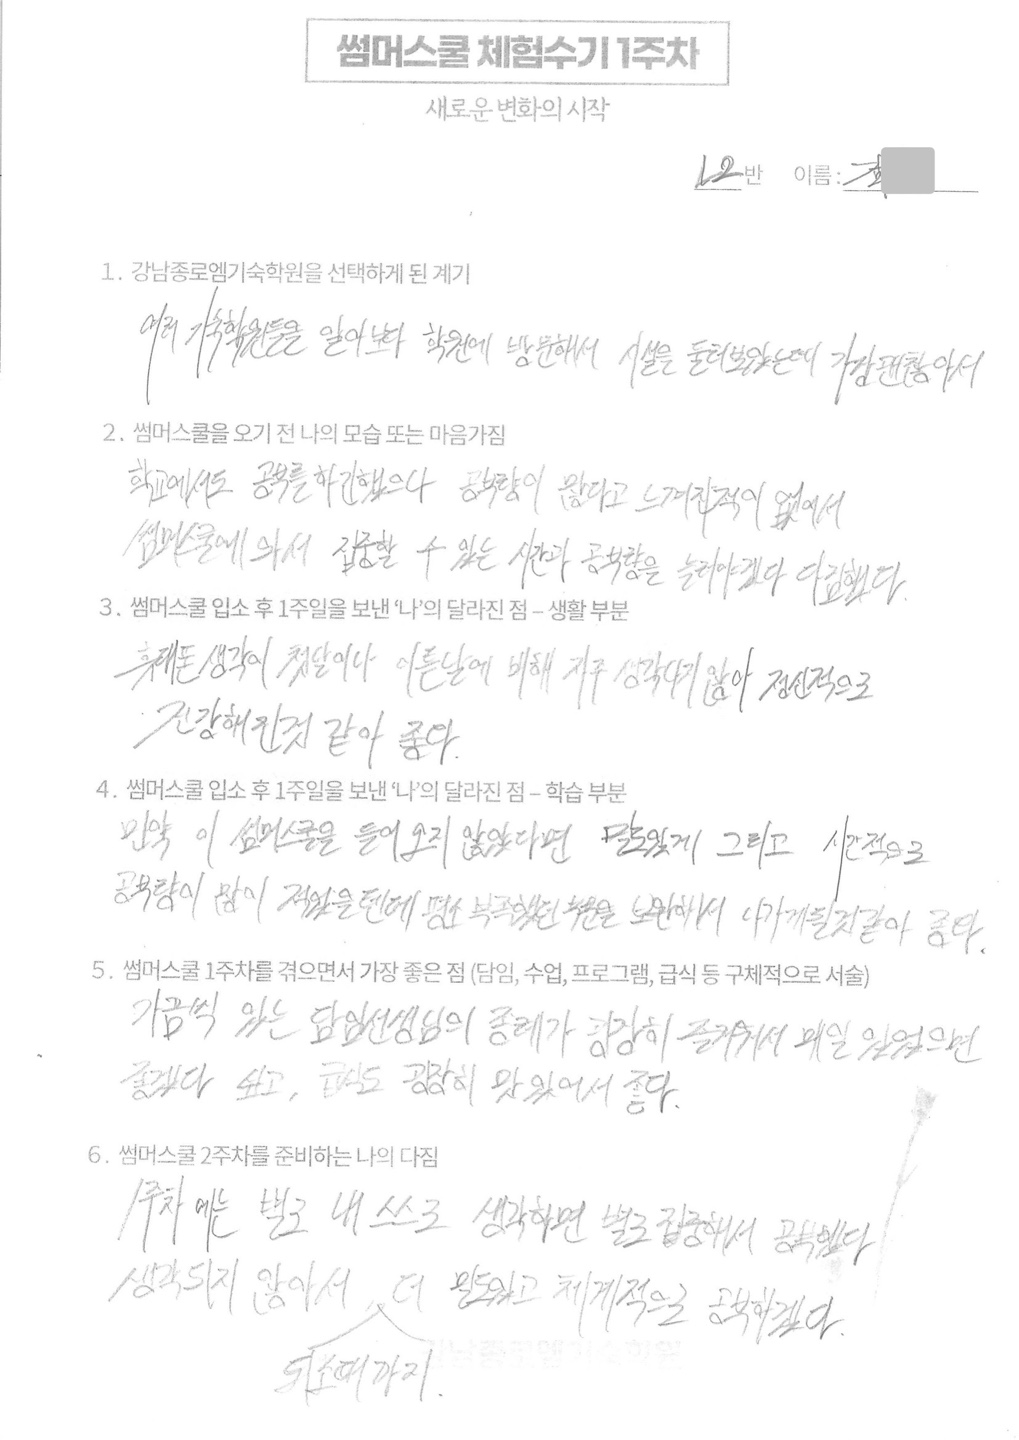 썸머스쿨 체험수기 1주차
새로운 변화의 시작
12반 이름 :
1. 강남종로엠기숙학원을 선택하게 된 계기
여러 기숙학원들을 알아보다 학원에 방문해서 시설을 둘러보았는데 가장 괜찮아서
2. 썸머스쿨을 오기 전 나의 모습 또는 마음가짐
학교에서도 공부를 하긴했으나 공부량이 많다고 느껴진적이 없어서
썸머스쿨에 와서 집중할 수 있는 시간과 공부량을 늘려야겠다 다짐했다.
3. 썸머스쿨 입소 후 1주일을 보낸 ‘나’의 달라진 점 – 생활 부분
휴대폰 생각이 첫날이나 이튿날에 비해 자주 생각나지 않아 정신적으로
건강해진것 같아 좋다.
4. 썸머스쿨 입소 후 1주일을 보낸 ‘나’의 달라진 점 – 학습 부분
만약 이 썸머스쿨을 들어오지 않았다면 밀도있게 그리고 시간적으로
공부량이 많이 적었을텐데 평소 부족했던 부분을 보완해서 나가게될것같아 좋다.
5. 썸머스쿨 1주차를 겪으면서 가장 좋은 점 (담임, 수업, 프로그램, 급식 등 구체적으로 서술)
가끔씩 있는 담임선생님의 종례가 굉장히 즐거워서 매일 있었으면
좋겠다 싶고, 급식도 굉장히 맛있어서 좋다.
6. 썸머스쿨 2주차를 준비하는 나의 다짐
1주차에는 별로 내 스스로 생각하면 별로 집중해서 공부했다
생각되지 않아서 더 밀도있고 체계적으로 공부하겠다.
퇴소때까지.